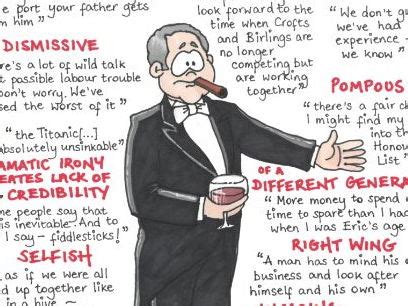 e port your father gets
im"
DISMISSIVE
re's a lot of wild talk
t possible labour trouble
on't worry. We've
sed the worst of it"
"the Titanic[...]
absolutely unsinkable"
AMATIC IRONY
EATES LACK OF
CREDIBILITY
me people say that
is inevitable. And to
I say - fiddlesticks!"
SELFISH
as if we were all
ed up together like
in a hive -
look forward to the
time when Crofts
and Birlings are
no longer
competing but
are working
together"
"We don't g
we've had
experience -
we know"
POMPOUS
"there's a fair ch
I might find my
into th
Honou
List"
OF A
DIFFERENT GENERA
"More money to spend
time to spare than I ha
when I was Eric's age
RIGHT WING
"A man has to mind his
business and look after
himself and his own"